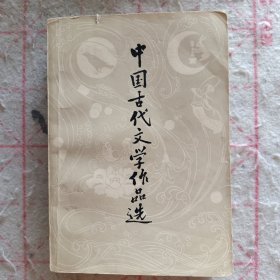 中国古代文学作品选